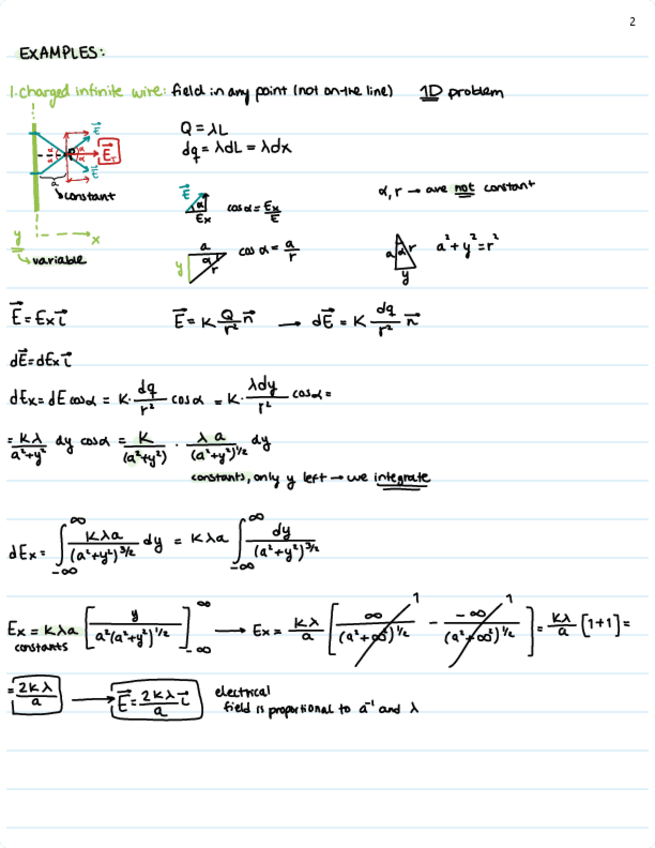 2
EXAMPLES:
1. charged infinite wire: field in any point (not on the line) 1D problem
Q = λL
dq = λdL = λdx
E⃗
E⃗_T
E⃗
α
a
↳ constant
y - - - → x
↳ variable
E⃗ α Ex cosα = Ex/E
α, r → are not constant
a α r y cos α = a/r
a α r y a² + y² = r²
E⃗ = Ex i⃗ E⃗ = K Q/r² n⃗ → dE⃗ = K dq/r² n⃗
dE⃗ = dEx i⃗
dEx = dE cosα = K · dq/r² cosα = K · λdy/r² cosα =
= Kλ/(a²+y²) dy cosα = K/(a²+y²) · λa/(a²+y²)^1/2 dy
constants, only y left → we integrate
dEx = ∫_{-∞}^{∞} Kλa/(a²+y²)^3/2 dy = Kλa ∫_{-∞}^{∞} dy/(a²+y²)^3/2
Ex = Kλa [y/(a²(a²+y²)^1/2)]_{-∞}^{∞} → Ex = Kλ/a [∞/(a²+∞²)^1/2 1 - -∞/(a²+∞²)^1/2 1] = Kλ/a [1+1] =
constants
= 2Kλ/a → E⃗ = 2Kλ/a i⃗ electrical
field is proportional to a⁻¹ and λ